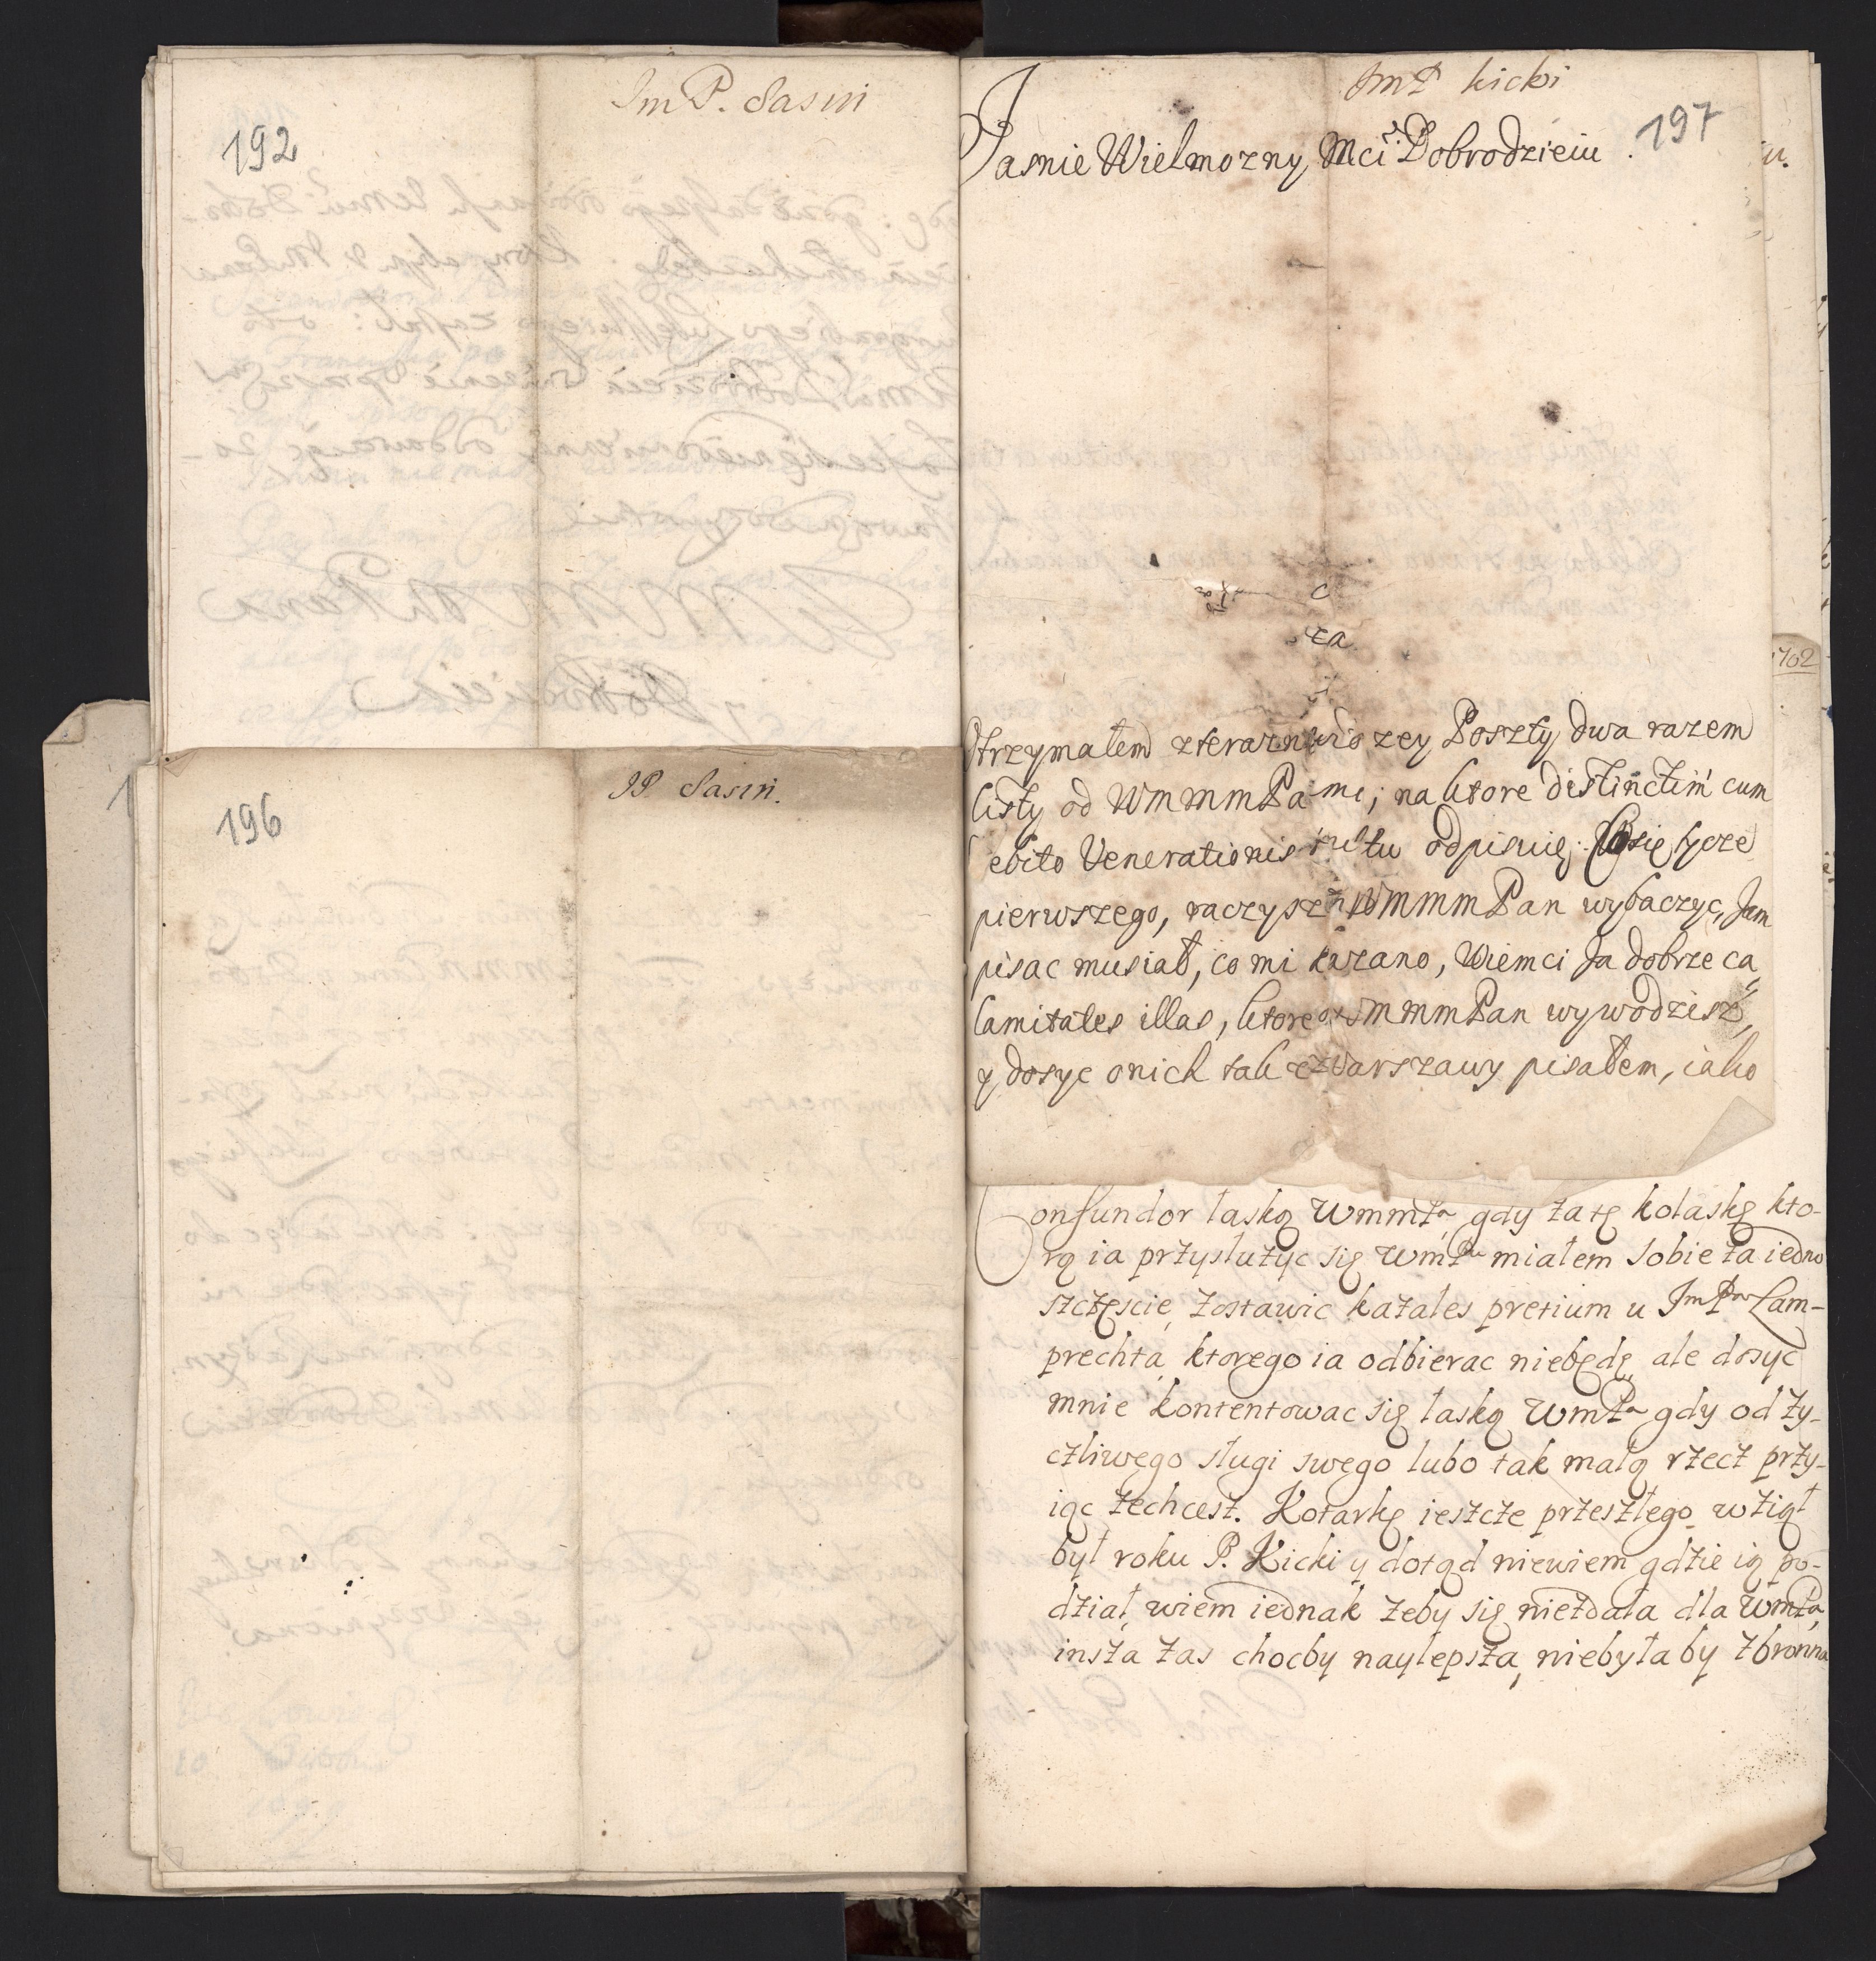 192
Im P. Sasin
196
JP Sasin.
ImP kicki
197
Jasnie Wielmozny Mci Dobrodzieiu.
za
Otrzymałem z Poszty dwa razem
listy od WMMMPa ; na ktore distinctim cum
ebito Venerationis cultu odpisuię. Co się tycze
pierwszego, raczysz WMMMPan wybaczyc, Jam
pisac musiał, co mi kazano, Wiemci Ja dobrze ca
lamitates illas, ktore WMMMPan wywodzisz,
y dosyc onich tak z Warszawy pisałem, iako
1702
Confundor łaską WmmPa gdy za tę kolaskę kto-
rą ia przysłużyc się WmPu miałem sobie za iedno
szczęscie, zostawic kazałes pretium u JmPa Lam-
prechta, ktorego ia odbierac niebędę, ale dosyc
mnie kontentowac się łaską WmPa gdy od ży-
czliwego sługi swego lubo tak małą rzecz przy-
iąc zechcesz. Kotarkę ieszcze przeszłego wziął
był roku P. Kicki y dotąd niewiem gdzie ią po-
dział, wiem iednak żeby się niezdała dla WmPa,
insza zas chocby naylepsza, niebyłaby zbronna